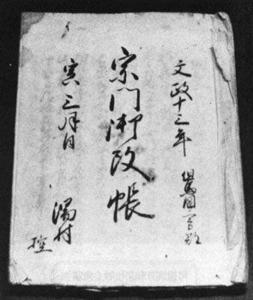 文政十三年
宗門御改帳
寅三月日
湯村
控